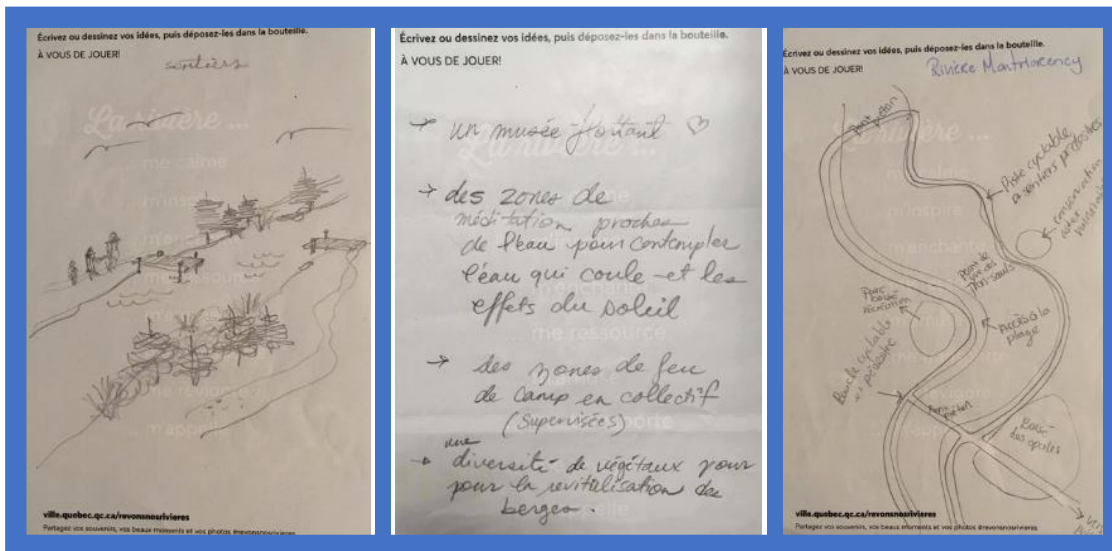 Écrivez ou dessinez vos idées, puis déposez-les dans la bouteille.
À VOUS DE JOUER!
sentiers
La rivière ...
... me calme
ville.quebec.qc.ca/revonsnosrivieres
Partagez vos souvenirs, vos beaux moments et vos photos #revonsnosrivieres
Écrivez ou dessinez vos idées, puis déposez-les dans la bouteille.
À VOUS DE JOUER!
→ un musée flottant ♡
→ des zones de
méditation proches
de l'eau pour contempler
l'eau qui coule et les
effets du soleil
... me ressource
→ des zones de feu
de camp en collectif
(Supervisées)
→ une diversité de végétaux pour
pour la revitalisation des
berges.
Écrivez ou dessinez vos idées, puis déposez-les dans la bouteille.
À VOUS DE JOUER!
Rivière Montmorency
Pont piéton
Piste cyclable
conservation
Point de
vue des
Accès à la
plage
Parc
récréation
Boucle cyclable
pédestre
Pont piéton
ville.quebec.qc.ca/revonsnosrivieres
Partagez vos souvenirs, vos beaux moments et vos photos #revonsnosrivieres